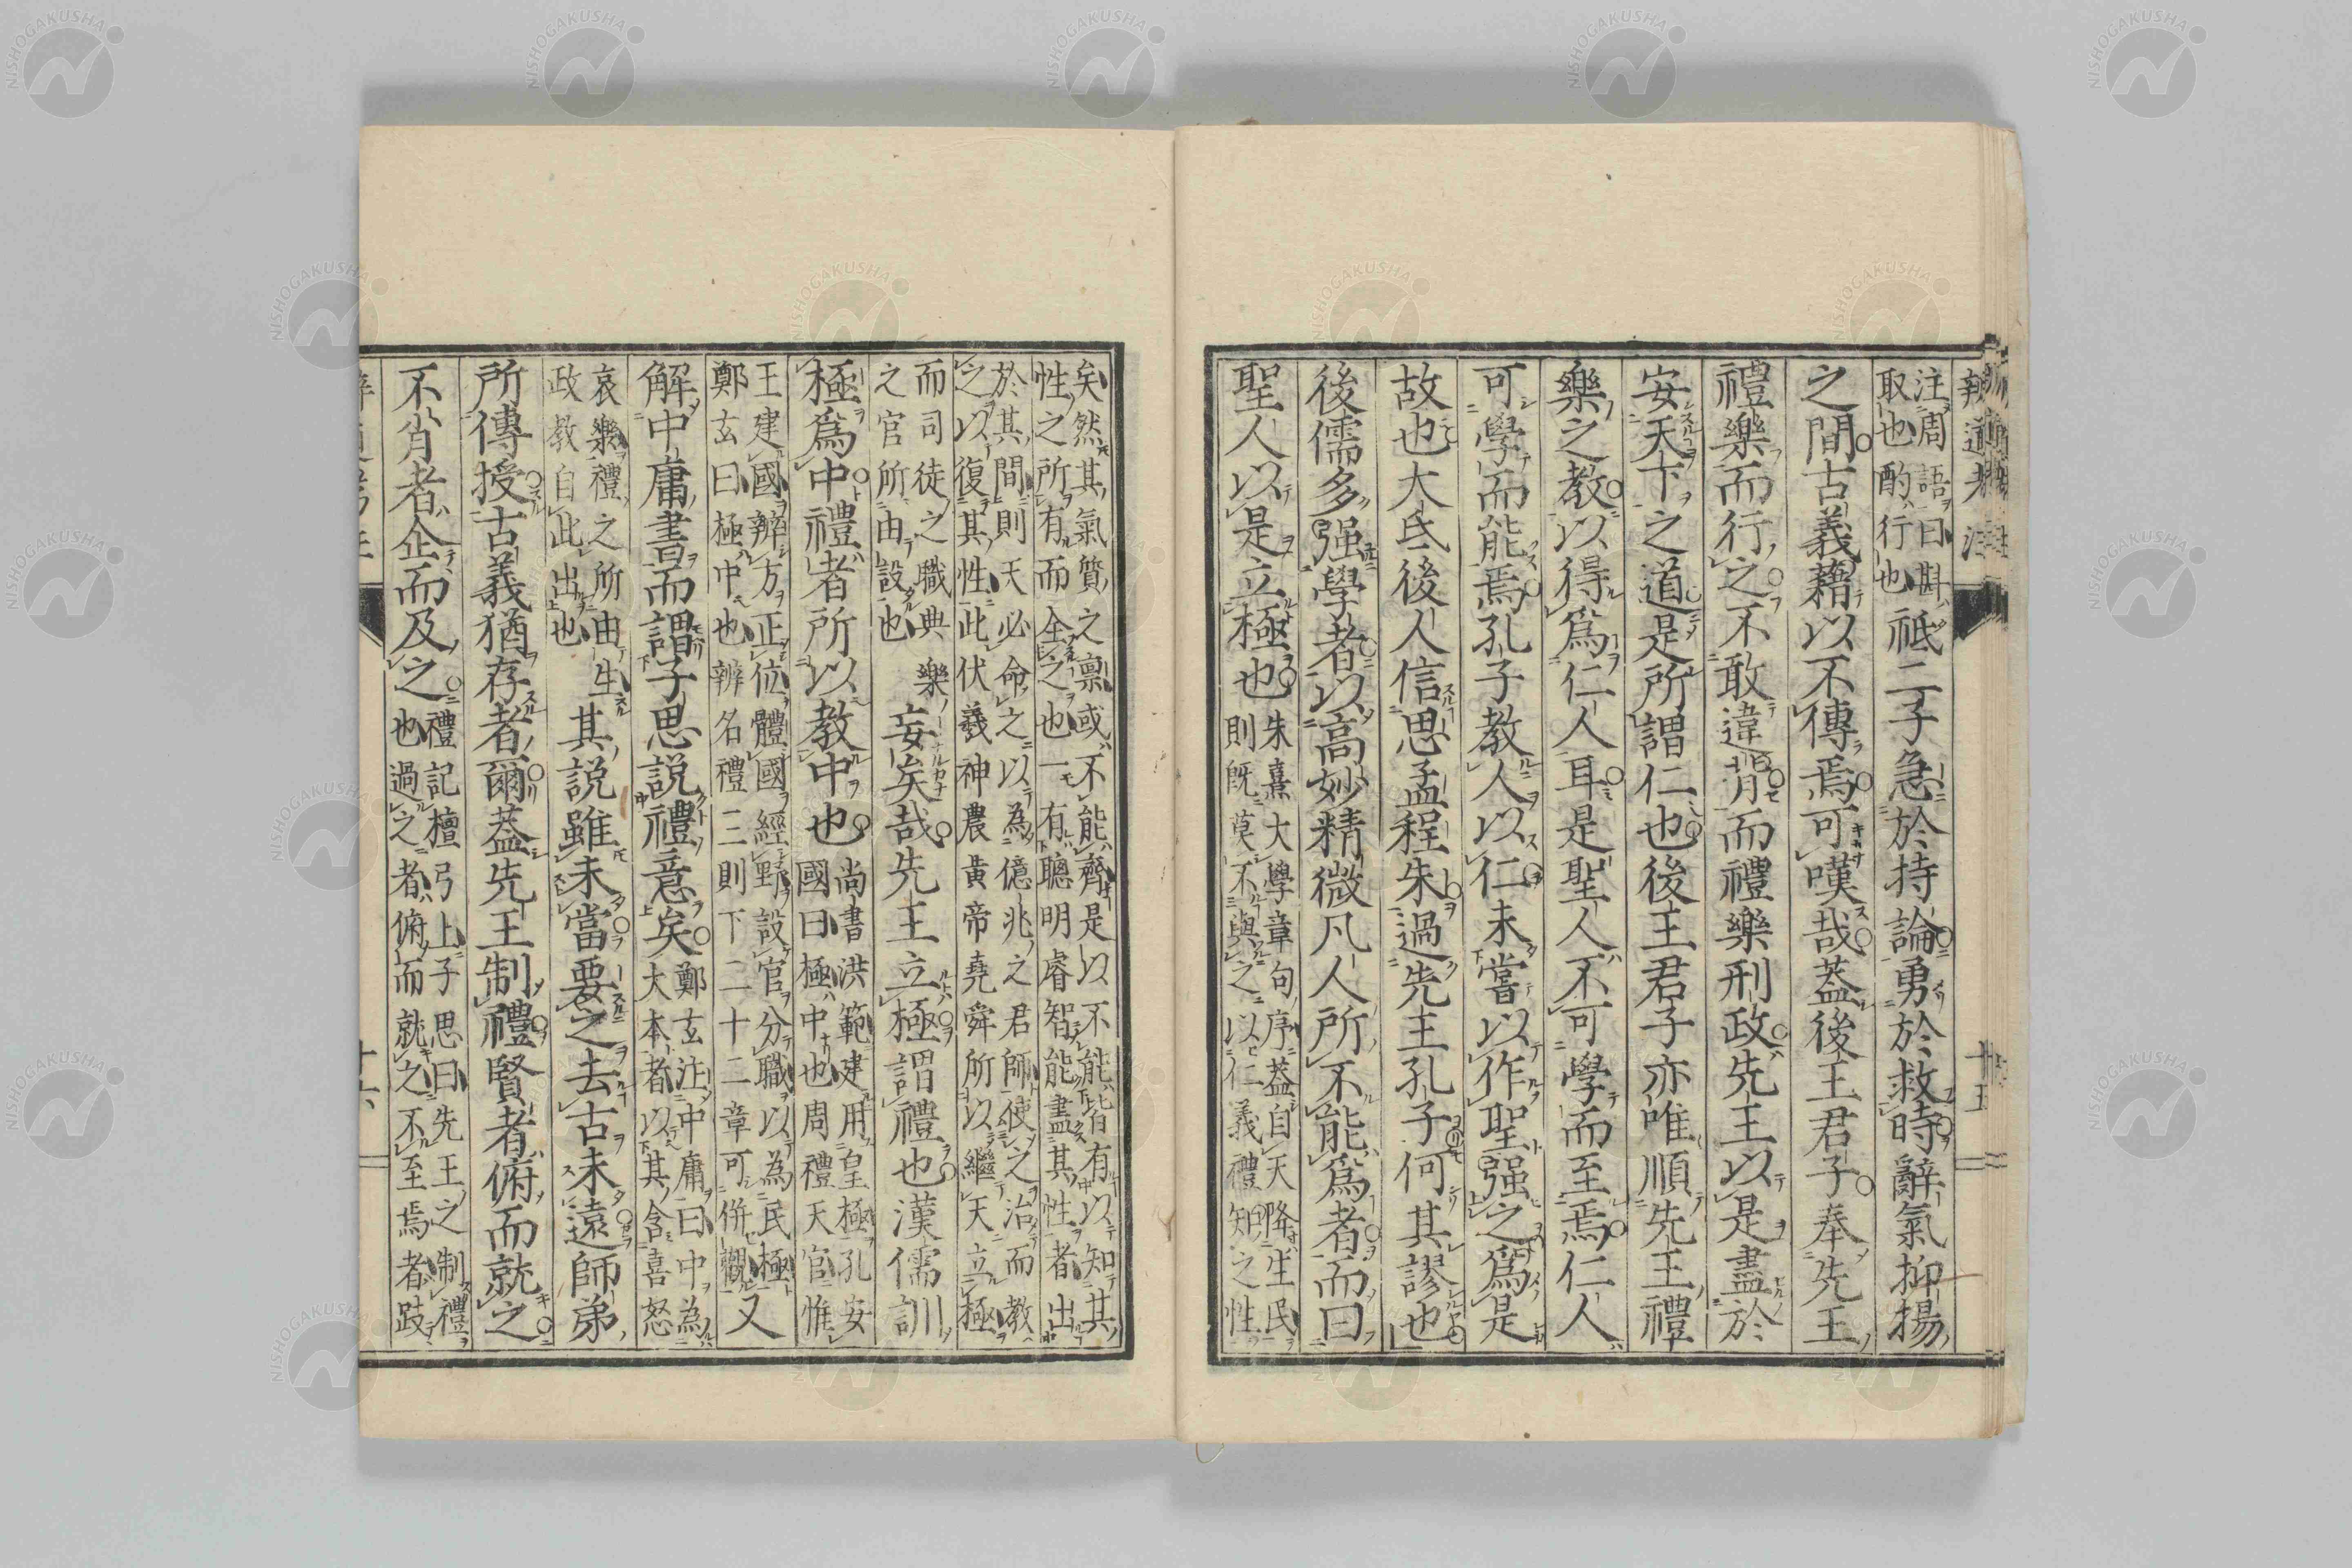 注周語曰斟
取也酌行也
祗二子急於持論勇於救時辭氣抑揚
之間古義藉以不傳焉可嘆哉蓋後王君子奉先王
禮樂而行之不敢違背而禮樂刑政先王以是盡於
安天下之道是所謂仁也後王君子亦唯順先王禮
樂之教以得爲仁人耳是聖人不可學而至焉仁人
可學而能焉孔子教人以仁未嘗以作聖强之爲是
故也大氐後人信思孟程朱過先王孔子何其謬也
後儒多强學者以高妙精微凡人所不能爲者而曰
聖人以是立極也
朱熹大學章句序蓋自天降生民
則既莫不與之以仁義禮知之性
矣然其氣質之稟或不能齊是以不能皆有以知其
性之所有而全之也一有聰明睿智能盡其性者出
於其間則天必命之以為億兆之君師使之治而教
之以復其性此伏羲神農黃帝堯舜所以繼天立極
而司徒之職典樂
之官所由設也
妄矣哉先王立極謂禮也漢儒訓
極爲中禮者所以教中也
尚書洪範建用皇極孔安
國曰極中也周禮天官惟
王建國辨方正位體國經野設官分職以為民極
鄭玄曰極中也辨名禮三則下二十二章可併觀
又
解中庸書而謂子思說禮意矣
鄭玄注中庸曰中為
大本者以其含喜怒
哀樂禮之所由生
政教自此出也
其說雖未當要之去古未遠師弟
所傳授古義猶存者爾蓋先王制禮賢者俯而就之
不肖者企而及之
禮記檀弓上子思曰先王之制禮
也過之者俯而就之不至焉者跂